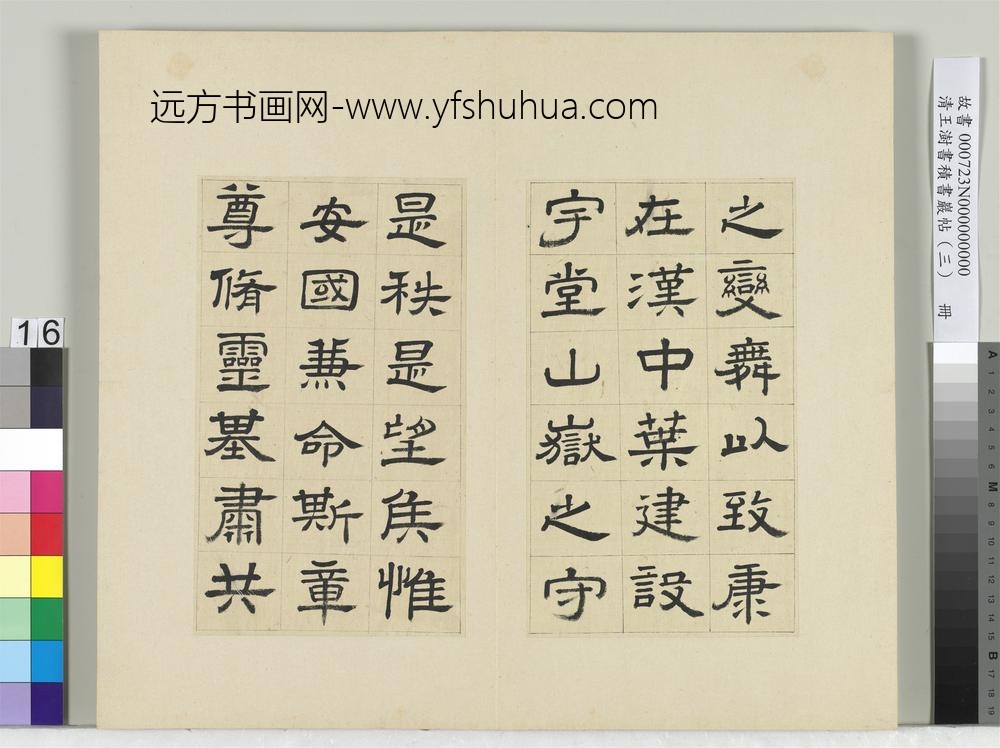 远方书画网-www.yfshuhua.com
之變舞以致康
在漢中葉建設
宇堂山嶽之守
是秩是望矦惟
安國兼命斯章
尊脩靈基肅共
故書 000723N000000000
清王澍書積書巖帖（三） 冊
16
A 1 2 3 4 5 6 M 8 9 10 11 12 13 14 15 B 17 18 19